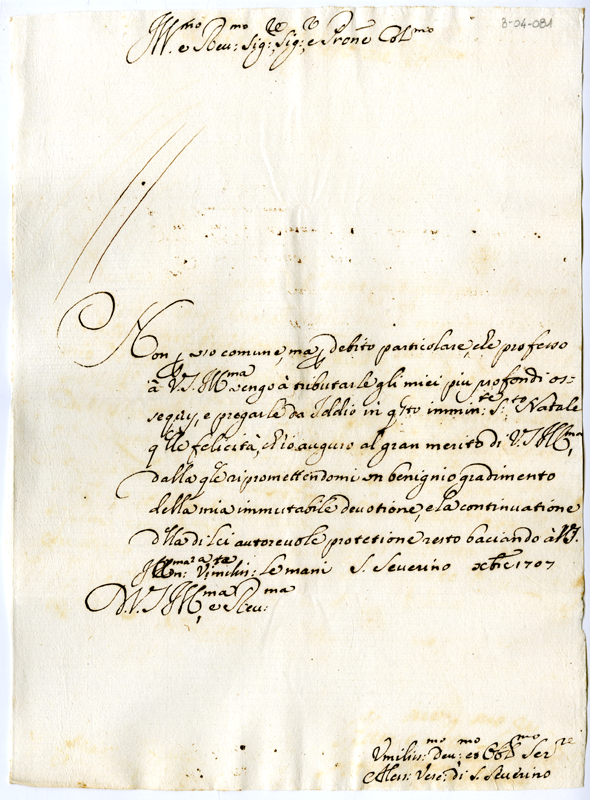 3-04-081
Ill.mo e Reu:mo Sig:re Sig:r e Prone Col.mo
Non p uso comune, ma p debito particolare, che professo
à V.S. Ill.ma uengo à tributarle gli miei piu profondi os=
sequij, e pregarle da Iddio in q.sto immin:te S:to Natale
q.lle felicità, ch'io auguro al gran merito di V.S. Ill.ma,
dalla q.le ripromettendomi un benignio gradimento
della mia immutabile deuotione, e la continuatione
d'lla di lei autoreuole protetione resto baciando à V.S.
Ill.ma Umilm:te le mani S. Seuerino Xbre 1707
D. V. S. Ill.ma e Reu:ma
Umiliss:mo Deu:mo et Obl.mo Ser.re
Aless: Vesc: di S. Seuerino